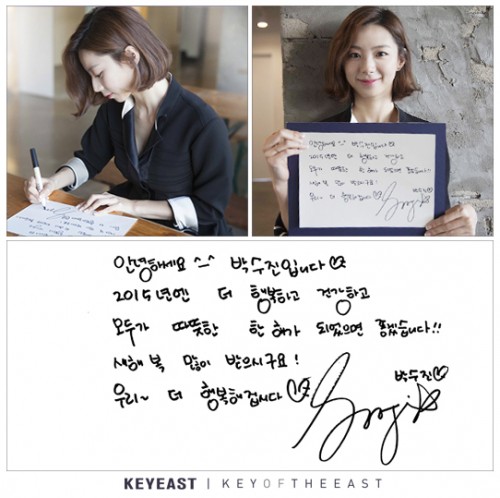 안녕하세요 ^_^ 박수진입니다♡
2015년엔 더 행복하고 건강하고
모두가 따뜻한 한 해가 되었으면 좋겠습니다!!
새해 복 많이 받으시구요!
우리~ 더 행복해집시다♡♡
박수진♡
KEYEAST | KEYOFTHEEAST